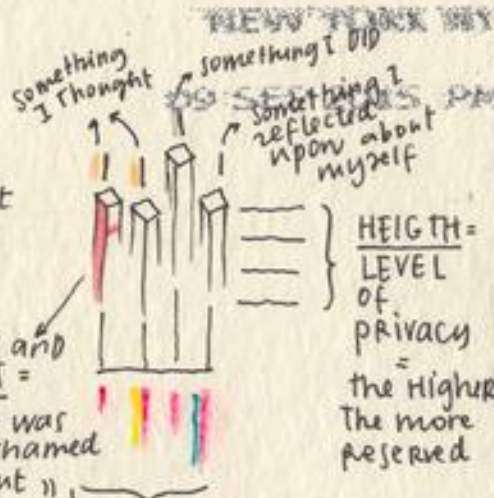 NEW YORK NY
09 SEP 2015 PM
something
I Thought
something I DID
something I
reflected
upon about
myself
HEIGTH=
LEVEL
OF
PRIVACY
=
the Higher
The more
Reserved
and
=
was